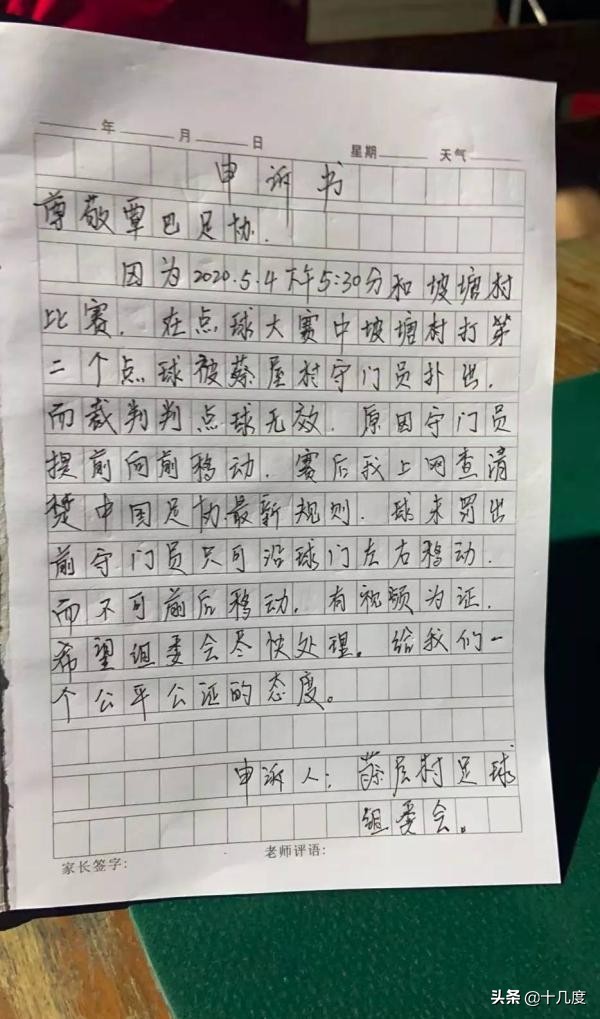 年 月 日 星期 天气
申诉书
尊敬覃巴足协.
因为2020.5.4下午5:30分和坡塘村
比赛. 在点球大赛中坡塘村打第
二个点球被蔡屋村守门员扑出.
而裁判判点球无效. 原因守门员
提前向前移动. 赛后我上网查清
楚中国足协最新规则. 球未罚出
前守门员只可沿球门左右移动.
而不可前后移动. 有视频为证.
希望组委会尽快处理。给我们一
个公平公证的态度。
申诉人: 蔡屋村足球
组委会。
家长签字: 老师评语:
头条 @十几度